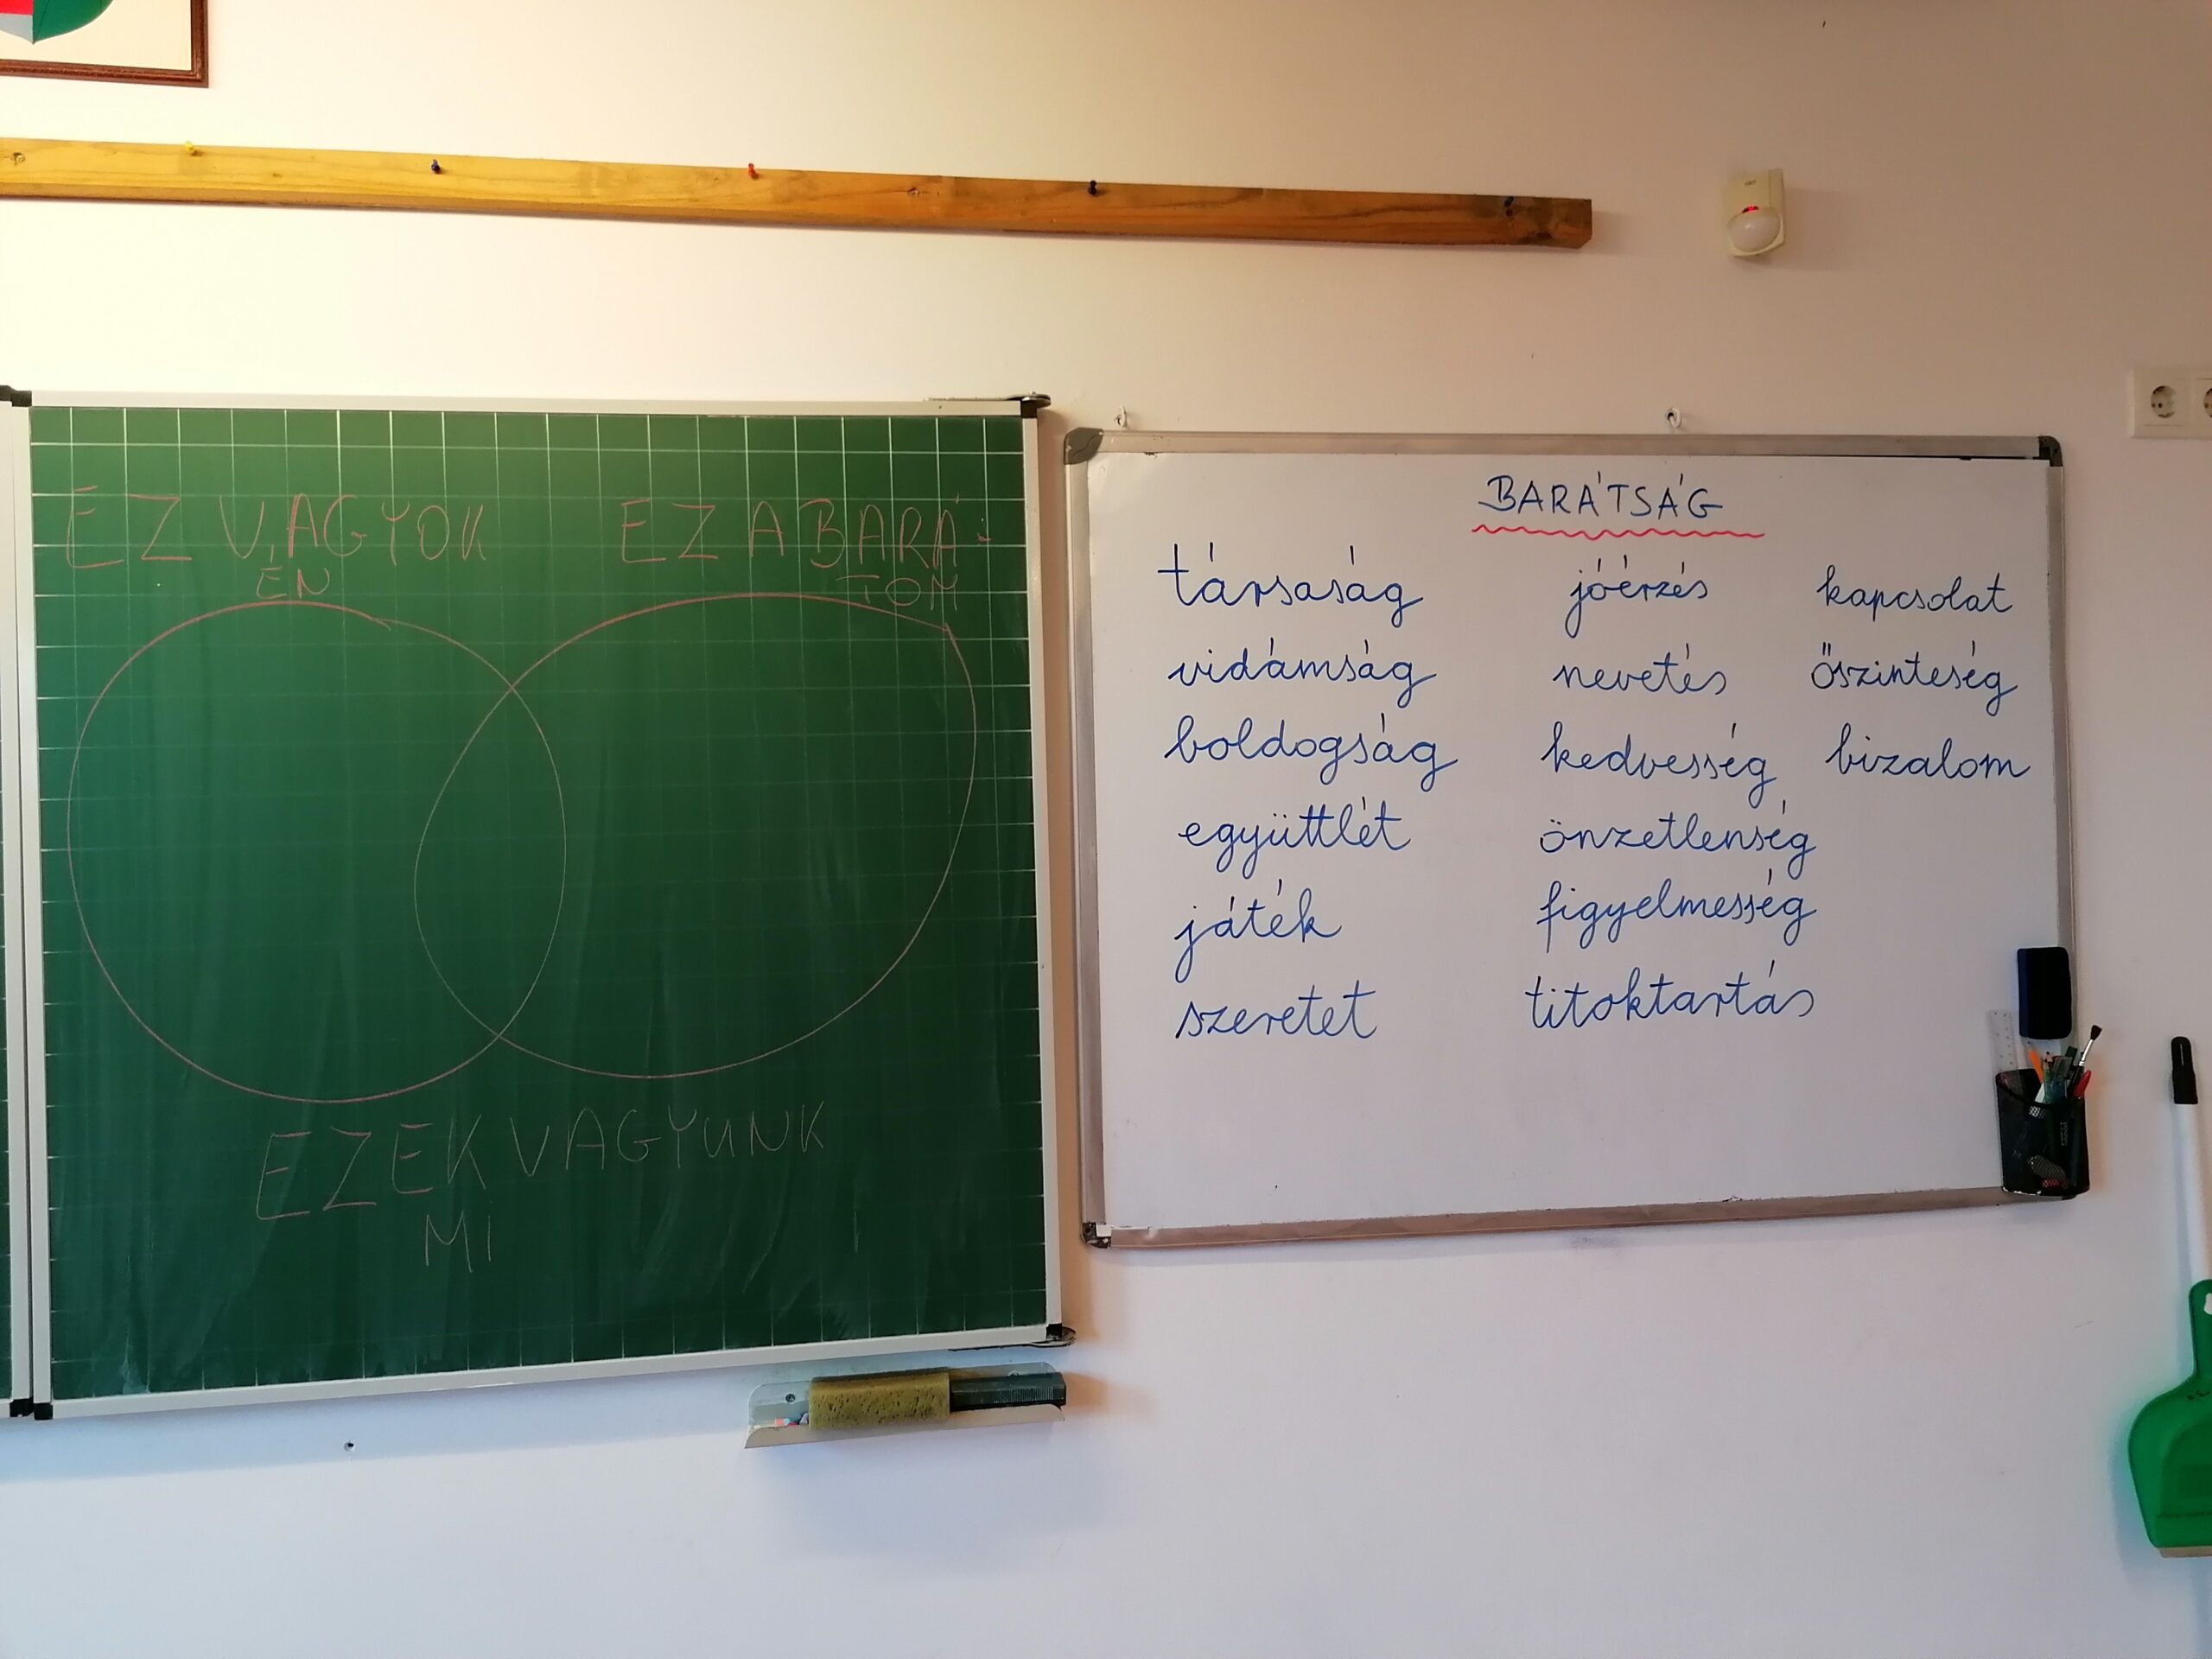 EZ VAGYOK
ÉN
EZ A BARÁ-
TOM
EZEK VAGYUNK
MI
BARÁTSÁG
társaság
vidámság
boldogság
együttlét
játék
szeretet
jóérzés
nevetés
kedvesség
önzetlenség
figyelmesség
titoktartás
kapcsolat
őszinteség
bizalom